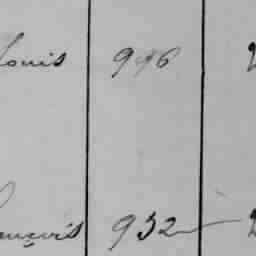 Louis 996
François 932